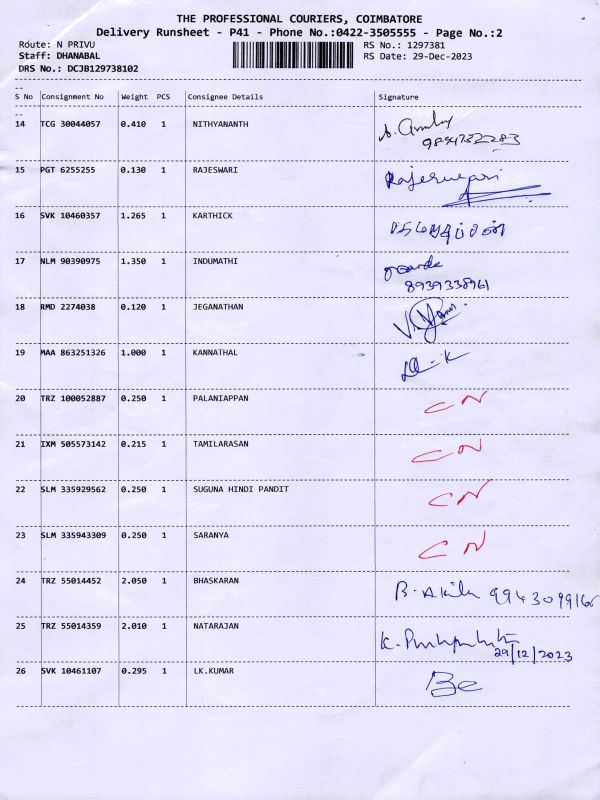 THE PROFESSIONAL COURIERS, COIMBATORE
Delivery Runsheet - P41 - Phone No.:0422-3505555 - Page No.:2
Route: N PRIVU RS No.: 1297381
Staff: DHANABAL RS Date: 29-Dec-2023
DRS No.: DCJB129738102
--
S No Consignment No Weight PCS Consignee Details Signature
--
14 TCG 30044057 0.410 1 NITHYANANTH
9894732283
15 PGT 6255255 0.130 1 RAJESWARI Rajeswari
16 SVK 10460357 1.265 1 KARTHICK
17 NLM 90390975 1.350 1 INDUMATHI
8939338961
18 RMD 2274038 0.120 1 JEGANATHAN
19 MAA 863251326 1.000 1 KANNATHAL
20 TRZ 100052887 0.250 1 PALANIAPPAN CN
21 IXM 505573142 0.215 1 TAMILARASAN CN
22 SLM 335929562 0.250 1 SUGUNA HINDI PANDIT CN
23 SLM 335943309 0.250 1 SARANYA CN
24 TRZ 55014452 2.050 1 BHASKARAN B. Akila
25 TRZ 55014359 2.010 1 NATARAJAN
29/12/2023
26 SVK 10461107 0.295 1 LK.KUMAR